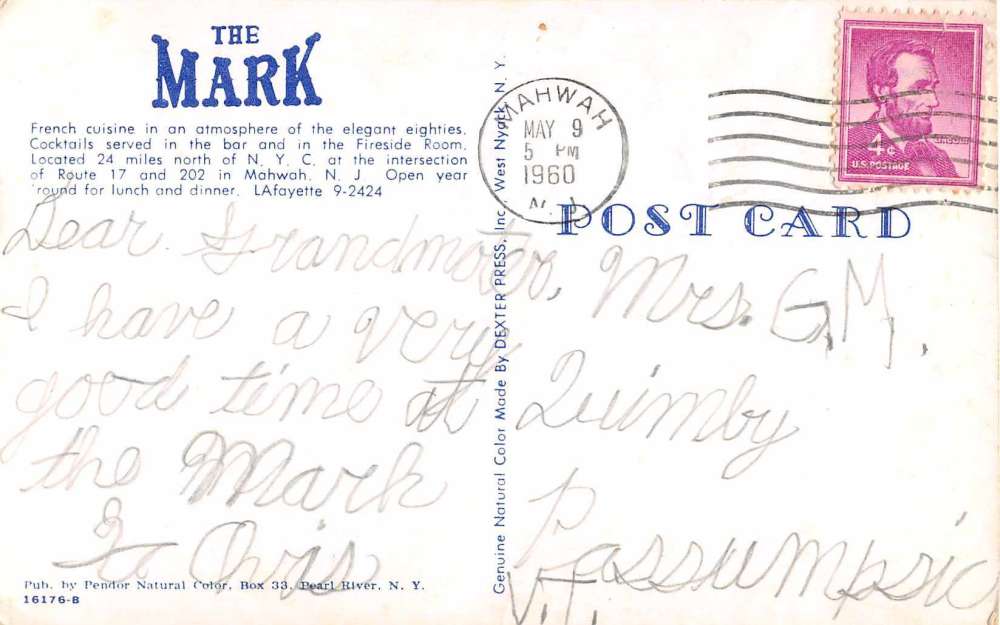 THE
MARK
French cuisine in an atmosphere of the elegant eighties.
Cocktails served in the bar and in the Fireside Room.
Located 24 miles north of N. Y. C. at the intersection
of Route 17 and 202 in Mahwah, N. J. Open year
'round for lunch and dinner. LAfayette 9-2424
Dear Grandmoter,
I have a very
good time at
the Mark
Pub. by Pendor Natural Color, Box 33, Pearl River, N. Y.
16176-B
Genuine Natural Color Made By DEXTER PRESS, Inc., West Nyack, N. Y.
MAHWAH
MAY 9
5 PM
1960
N. J.
4¢
LINCOLN
U.S. POSTAGE
POST CARD
Mrs. G.M.
Quimby
Passumpsic
V.T.